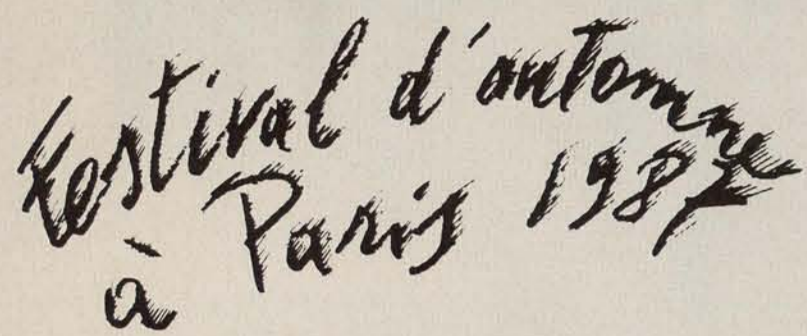 Festival d'automne
à Paris 1987